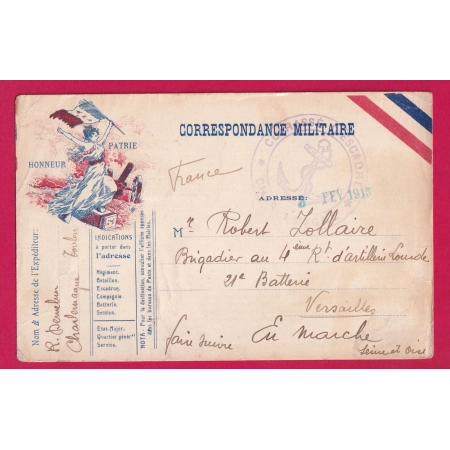 HONNEUR PATRIE
CORRESPONDANCE MILITAIRE
France
CUIRASSÉ
ADRESSE:
8 FEV 1915
Mr Robert Zollaire
Brigadier au 4ème Rt d'artillerie Lourde
21e Batterie
Versailles
faire suivre En Marche
Seine et Oise
Nom & Adresse de l'Expéditeur:
Charlemagne Toulon
INDICATIONS
à porter dans
l'adresse
Régiment.
Bataillon.
Escadron.
Compagnie
Batterie.
Section.
Etat-Major.
Quartier génér^al
Service.
NOTA. - Pour la destination, consulter l'affiche apposée
dans les bureaux de Poste et dans les Mairies.